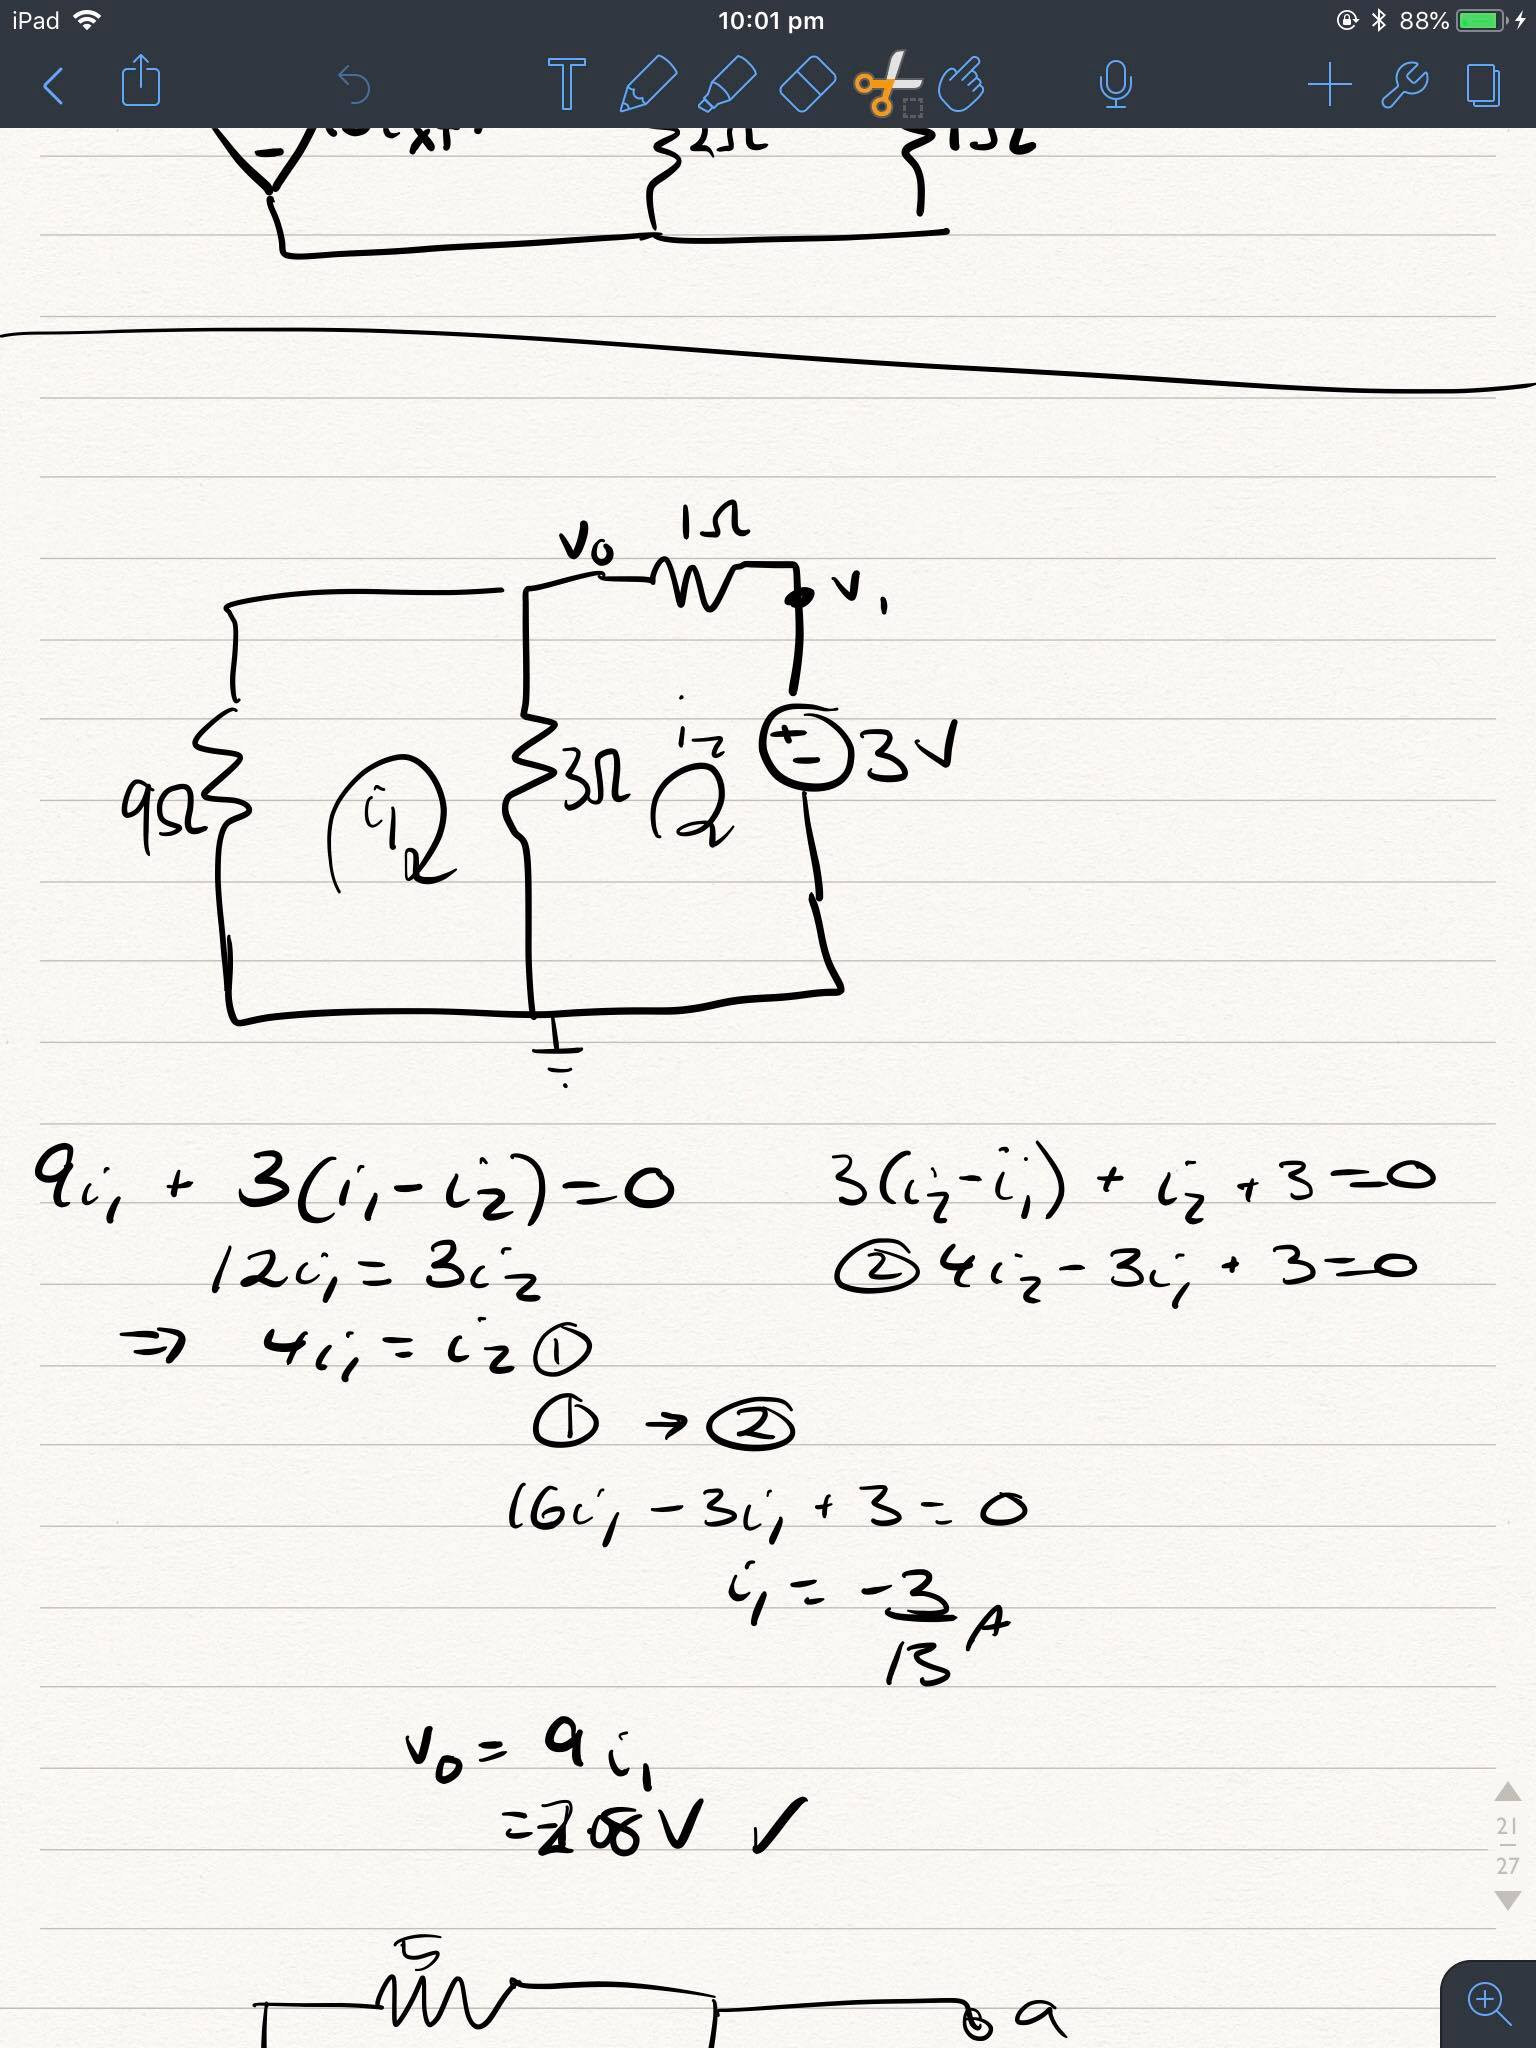 iPad 10:01 pm 88%
T
2Ω 1Ω
-
1Ω
V₀ V₁
9Ω i₁ 3Ω i₂ + - 3V
9i₁ + 3(i₁ - i₂) = 0
12i₁ = 3i₂
⇒ 4i₁ = i₂ ①
3(i₂ - i₁) + i₂ + 3 = 0
② 4i₂ - 3i₁ + 3 = 0
① → ②
16i₁ - 3i₁ + 3 = 0
i₁ = -3/13 A
V₀ = 9i₁
= -2.08V ✓
21
27
5
a